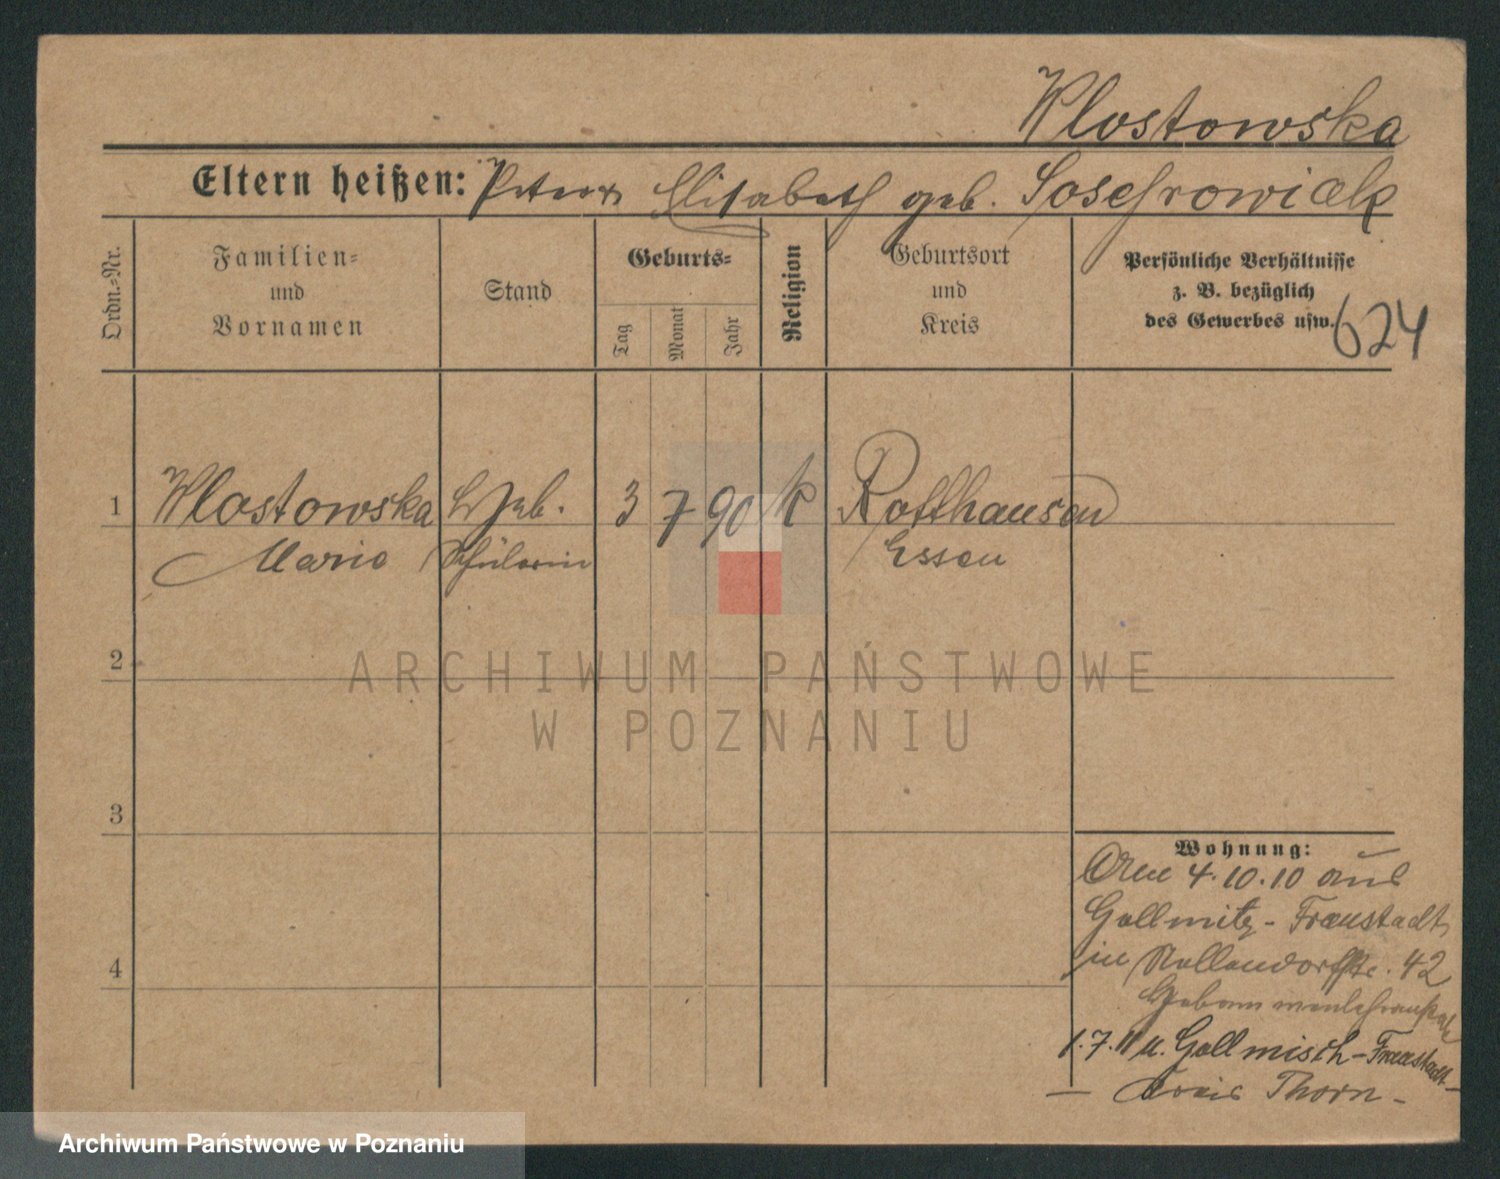 Wlostowska
Eltern heißen: Peter Elisabeth geb.
Ordn.-Nr.
Familien=
und
Vornamen
Stand
Geburts=
Tag
Monat
Jahr
Religion
Geburtsort
und
Kreis
Persönliche Verhältnisse
z. B. bezüglich
des Gewerbes usw.
624
1 Wlostowska Heb. 3 7 90 k Rotthausen
Marie Schülerin Essen
2
3
4
Wohnung:
4.10.10 aus
Gollmitz - Fraustadt
in Nollendorfstr. 42
Hebammenlehranstalt
1.7.11 n. Gollmisch - Fraustadt
- Kreis Thorn -
ARCHIWUM PAŃSTWOWE
W POZNANIU
Archiwum Państwowe w Poznaniu